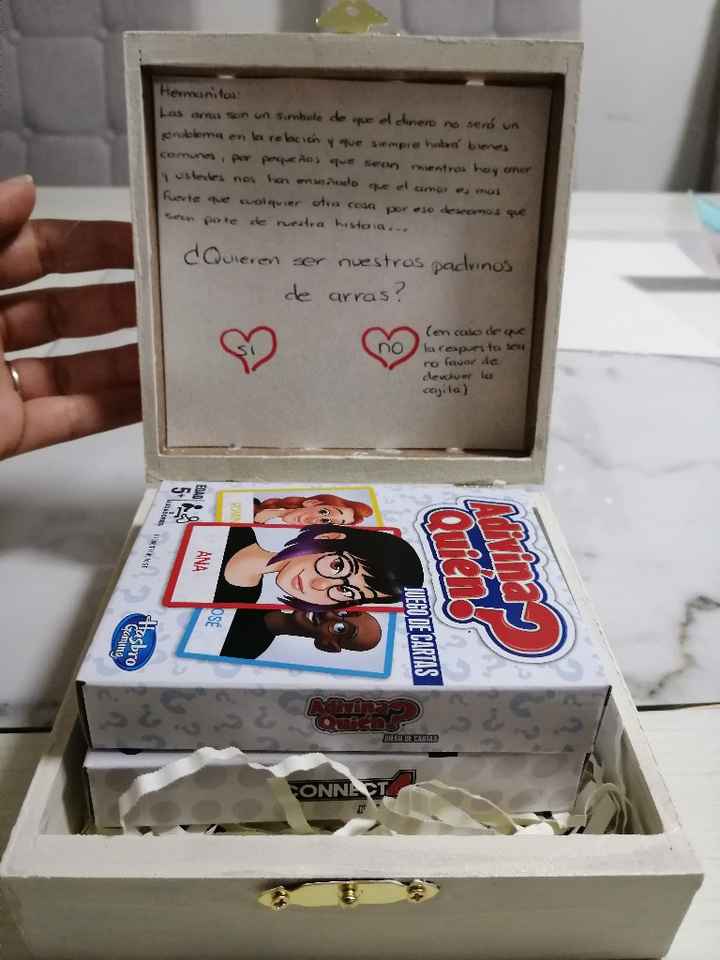 Hermanitos:
Las arras son un simbolo de que el dinero no será un
problema en la relación y que siempre habrá bienes
comunes, por pequeños que sean, mientras hay amor
y ustedes nos han enseñado que el amor es mas
fuerte que cualquier otra cosa por eso deseamos que
sean parte de nuestra historia...
¿Quieren ser nuestros padrinos
de arras?
si
no
(en caso de que
la respuesta sea
no favor de
devolver la
cajita)
Adivina
Quién?
JUEGO DE CARTAS
EDAD
5+
ANA
JOSÉ
Hasbro
Gaming
Adivina
Quién?
JUEGO DE CARTAS
CONNECT 4